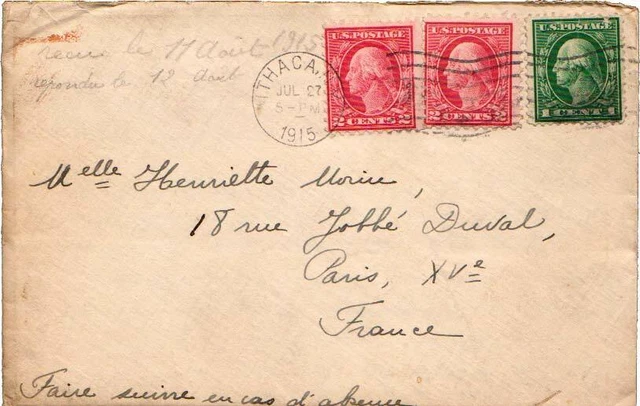 recu le 11 Août 1915
répondu le 12 Août
ITHACA, N
JUL 27
5-PM
1915
U.S. POSTAGE
2 CENTS 2
U.S. POSTAGE
2 CENTS 2
U.S. POSTAGE
1 CENT 1
Melle Henriette Morin,
18 rue Jobbé Duval,
Paris, XVe
France
Faire suivre en cas d'absence